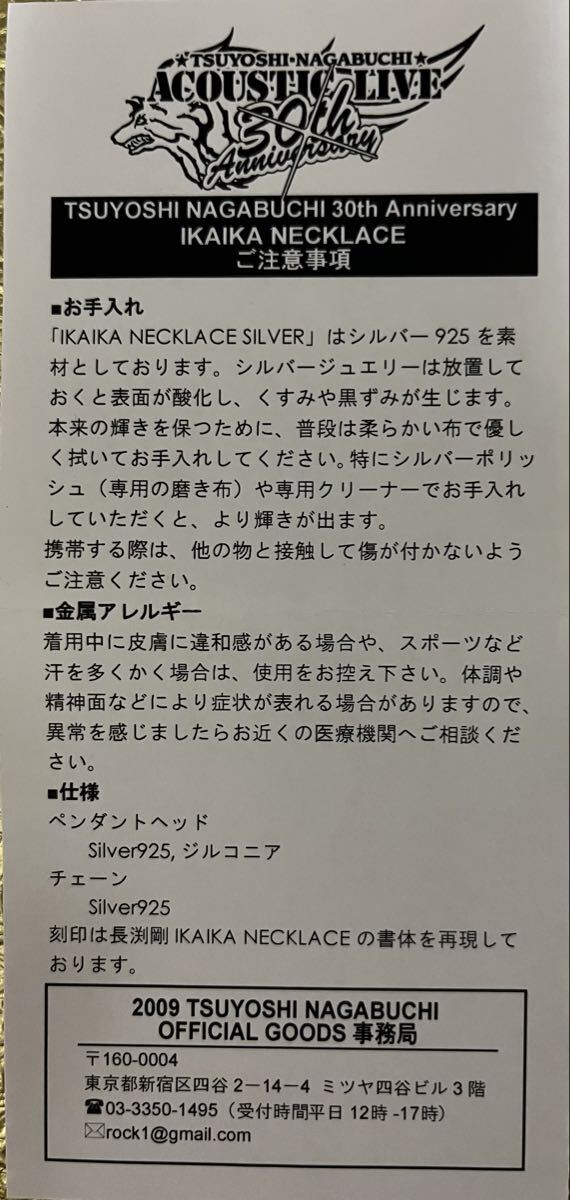 ★TSUYOSHI・NAGABUCHI★
ACOUSTIC LIVE
30th
Anniversary
TSUYOSHI NAGABUCHI 30th Anniversary
IKAIKA NECKLACE
ご注意事項
■お手入れ
「IKAIKA NECKLACE SILVER」はシルバー925を素
材としております。シルバージュエリーは放置して
おくと表面が酸化し、くすみや黒ずみが生じます。
本来の輝きを保つために、普段は柔らかい布で優し
く拭いてお手入れしてください。特にシルバーポリッ
シュ（専用の磨き布）や専用クリーナーでお手入れ
していただくと、より輝きが出ます。
携帯する際は、他の物と接触して傷が付かないよう
ご注意ください。
■金属アレルギー
着用中に皮膚に違和感がある場合や、スポーツなど
汗を多くかく場合は、使用をお控え下さい。体調や
精神面などにより症状が表れる場合がありますので、
異常を感じましたらお近くの医療機関へご相談くだ
さい。
■仕様
ペンダントヘッド
Silver925, ジルコニア
チェーン
Silver925
刻印は長渕剛 IKAIKA NECKLACE の書体を再現して
おります。
2009 TSUYOSHI NAGABUCHI
OFFICIAL GOODS 事務局
〒160-0004
東京都新宿区四谷2－14－4 ミツヤ四谷ビル3階
☎03-3350-1495（受付時間平日12時-17時）
✉rock1@gmail.com